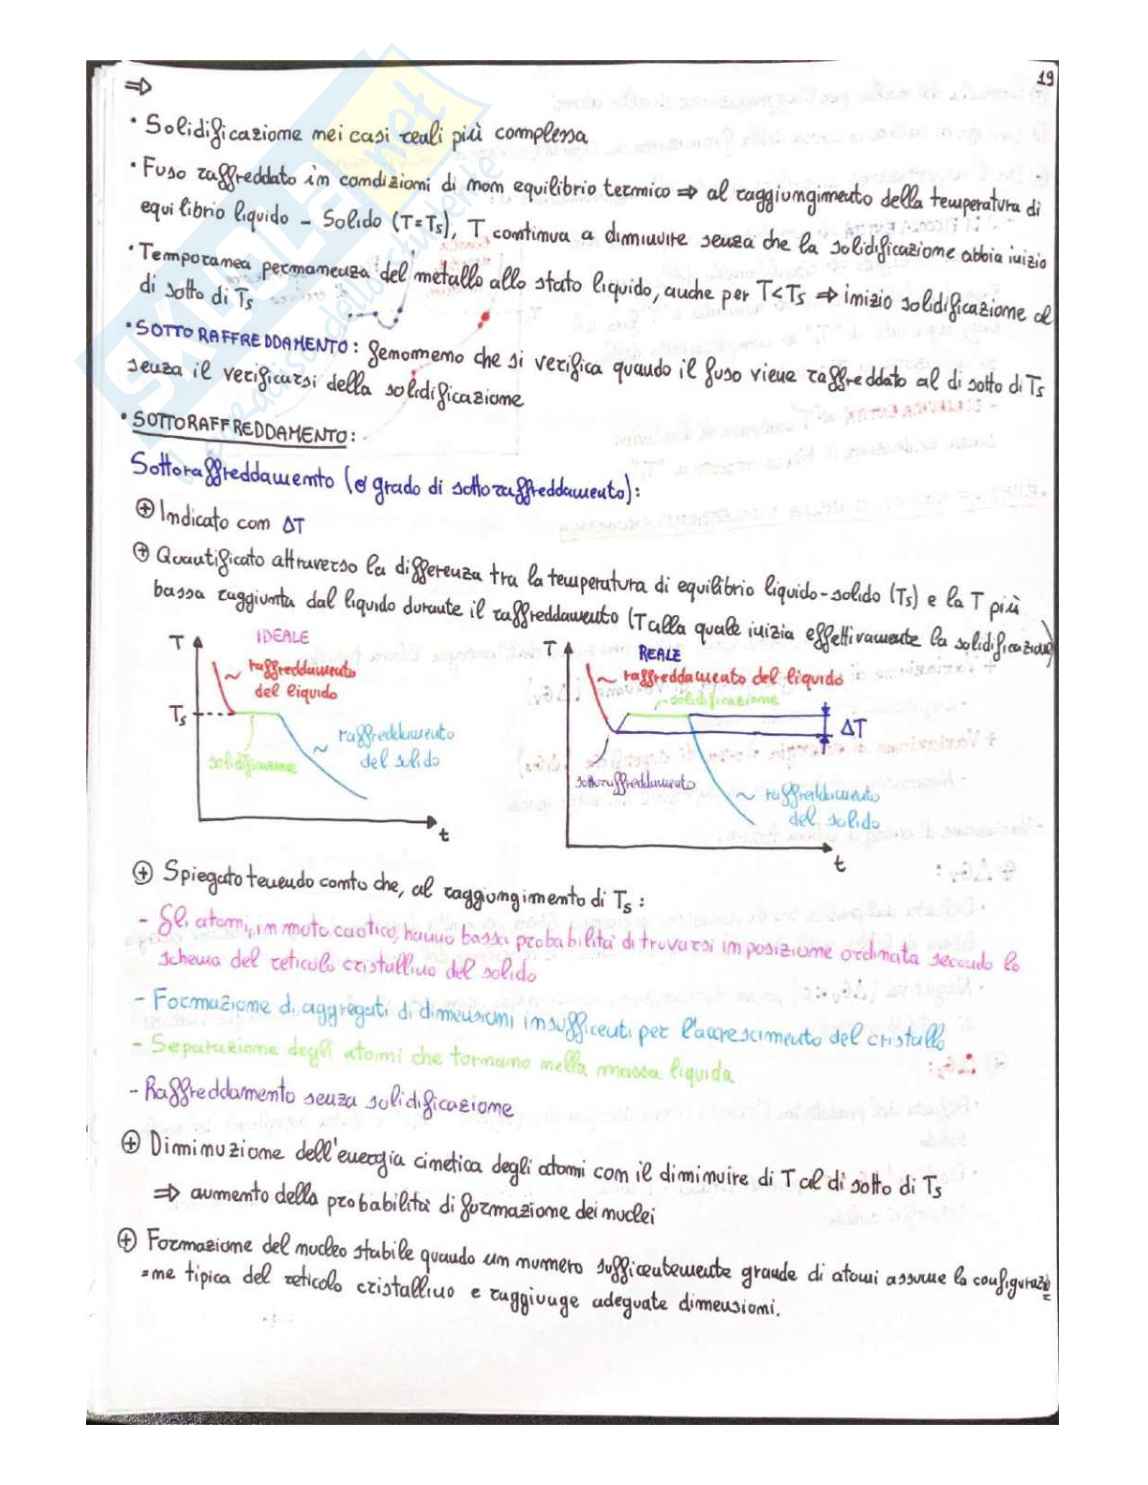 19
⇒
• Solidificazione nei casi reali più complessa
• Fuso raffreddato in condizioni di non equilibrio termico ⇒ al raggiungimento della temperatura di
equilibrio liquido - Solido (T=Ts), T continua a diminuire senza che la solidificazione abbia inizio
• Temporanea permanenza del metallo allo stato liquido, anche per T<Ts ⇒ inizio solidificazione al
di sotto di Ts
• SOTTORAFFREDDAMENTO: fenomeno che si verifica quando il fuso viene raffreddato al di sotto di Ts
senza il verificarsi della solidificazione
• SOTTORAFFREDDAMENTO:
Sottoraffreddamento (o grado di sottoraffreddamento):
⊕ Indicato con ΔT
⊕ Quantificato attraverso la differenza tra la temperatura di equilibrio liquido-solido (Ts) e la T più
bassa raggiunta dal liquido durante il raffreddamento (T alla quale inizia effettivamente la solidificazione)
T IDEALE
~ raffreddamento
del liquido
Ts
solidificazione
~ raffreddamento
del solido
t
T REALE
~ raffreddamento del liquido
solidificazione
ΔT
sottoraffreddamento
~ raffreddamento
del solido
t
⊕ Spiegato tenendo conto che, al raggiungimento di Ts:
- Gli atomi, in moto caotico, hanno bassa probabilità di trovarsi in posizione ordinata secondo lo
schema del reticolo cristallino del solido
- Formazione di aggregati di dimensioni insufficenti per l'accrescimento del cristallo
- Separazione degli atomi che tornano nella massa liquida
- Raffreddamento senza solidificazione
⊕ Diminuzione dell'energia cinetica degli atomi con il diminuire di T al di sotto di Ts
⇒ aumento della probabilità di formazione dei nuclei
⊕ Formazione del nucleo stabile quando un numero sufficentemente grande di atomi assume la configurazio
=ne tipica del reticolo cristallino e raggiunge adeguate dimensioni.